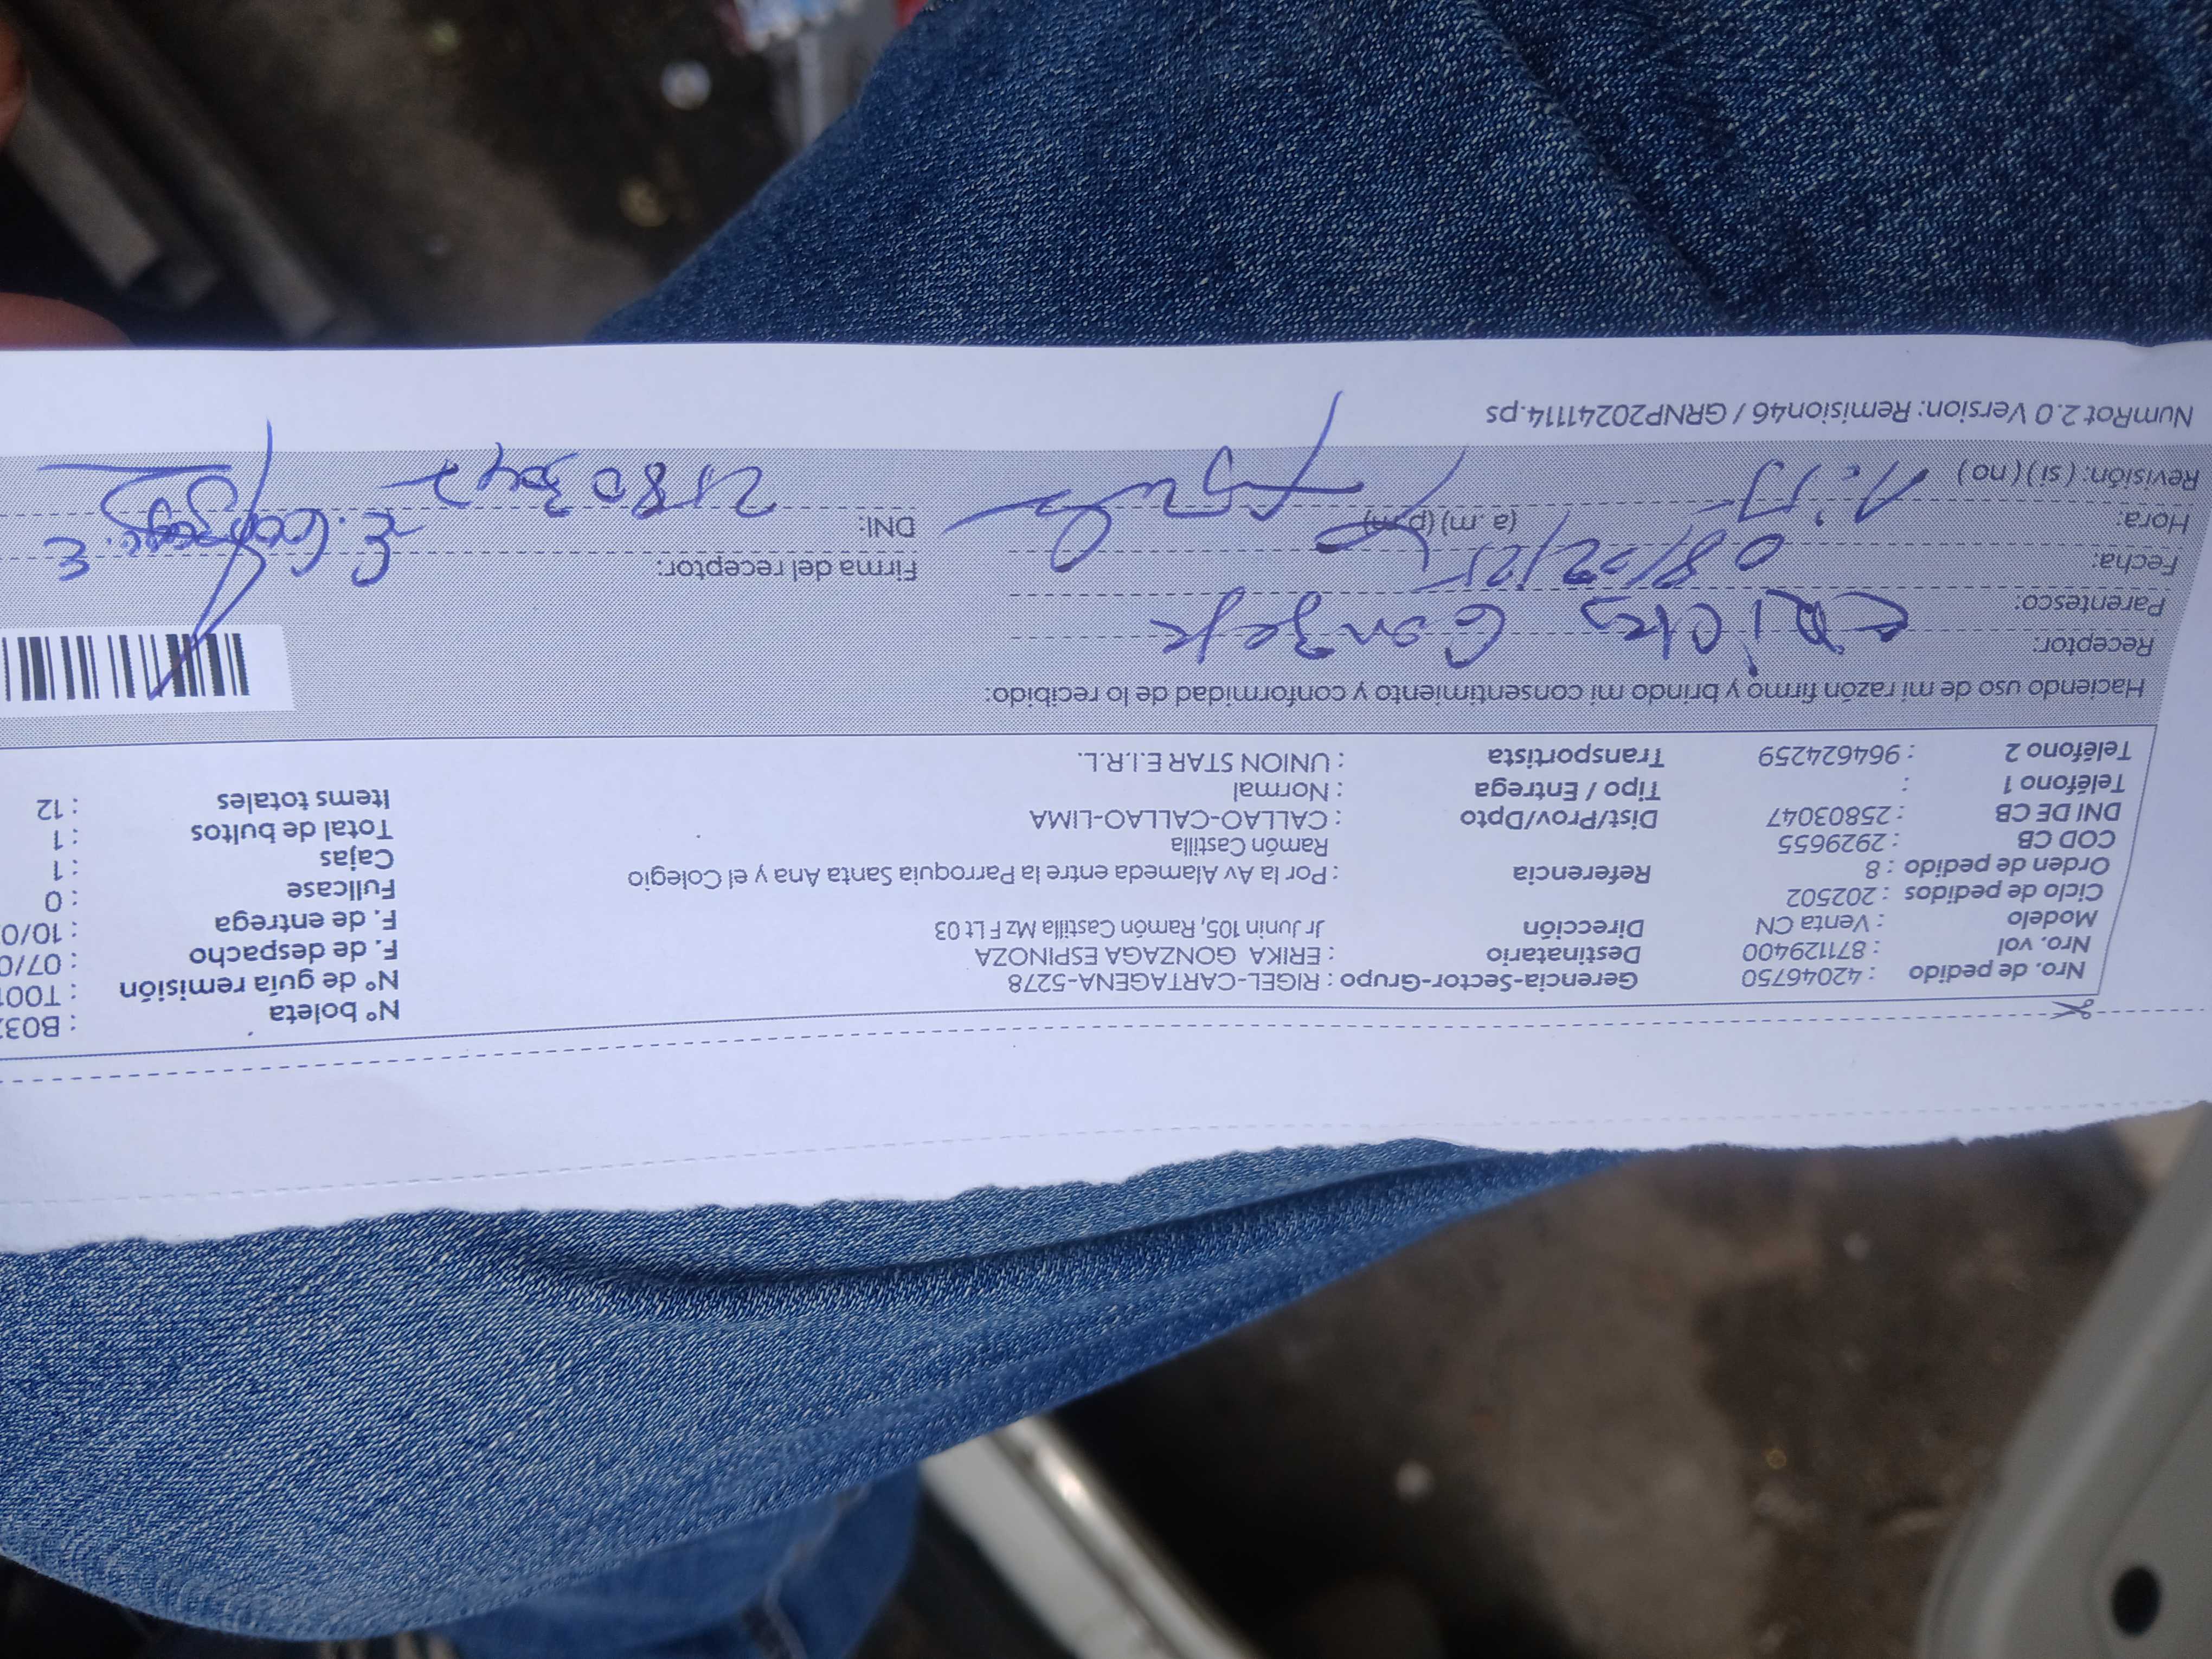 Nro. de pedido : 42046750 Gerencia-Sector-Grupo : RIGEL-CARTAGENA-5278 N° boleta : B03
Nro. vol : 871129400 Destinatario : ERIKA GONZAGA ESPINOZA N° de guía remisión : T001
Modelo : Venta CN Dirección Jr Junin 105, Ramón Castilla Mz F Lt 03 F. de despacho : 07/0
Ciclo de pedidos : 202502 F. de entrega : 10/0
Orden de pedido : 8 Referencia : Por la Av Alameda entre la Parroquia Santa Ana y el Colegio Fullcase : 0
COD CB : 2929655 Ramón Castilla Cajas : 1
DNI DE CB : 25803047 Dist/Prov/Dpto : CALLAO-CALLAO-LIMA Total de bultos : 1
Teléfono 1 : Tipo / Entrega : Normal Items totales : 12
Teléfono 2 : 964624259 Transportista : UNION STAR E.I.R.L.
Haciendo uso de mi razón firmo y brindo mi consentimiento y conformidad de lo recibido:
Receptor:
Parentesco:
Fecha: 08/02/25 Firma del receptor:
Hora: (a. m) (p. m) DNI:
Revisión: ( si ) ( no )
NumRot 2.0 Version: Remision46 / GRNP20241114.ps